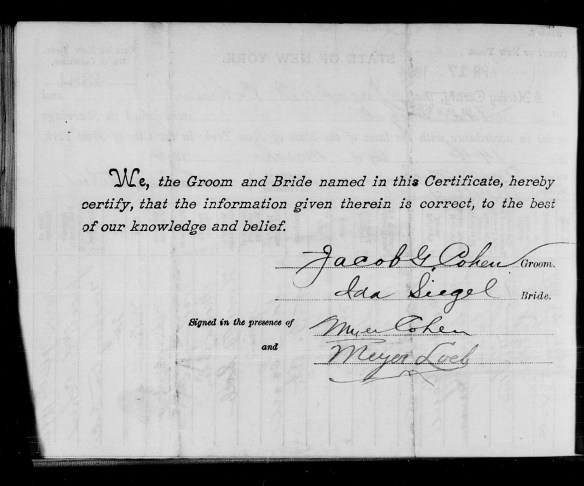 We, the Groom and Bride named in this Certificate, hereby
certify, that the information given therein is correct, to the best
of our knowledge and belief.
Jacob G. Cohen Groom.
Ida Siegel Bride.
Signed in the presence of Myer Cohen
and Meyer Loeb